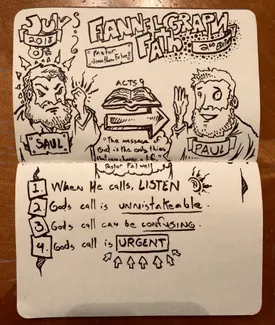 JULY
2018
FLANNELGRAPH
FAITH
Pastor
Jonathan Falwell
ACTS 9
SAUL
PAUL
"The message of
God is the only thing
that can change a life."
Pastor Falwell
1. When He calls, LISTEN
2. Gods call is unmistakeable.
3. Gods call can be confusing.
4. Gods call is URGENT